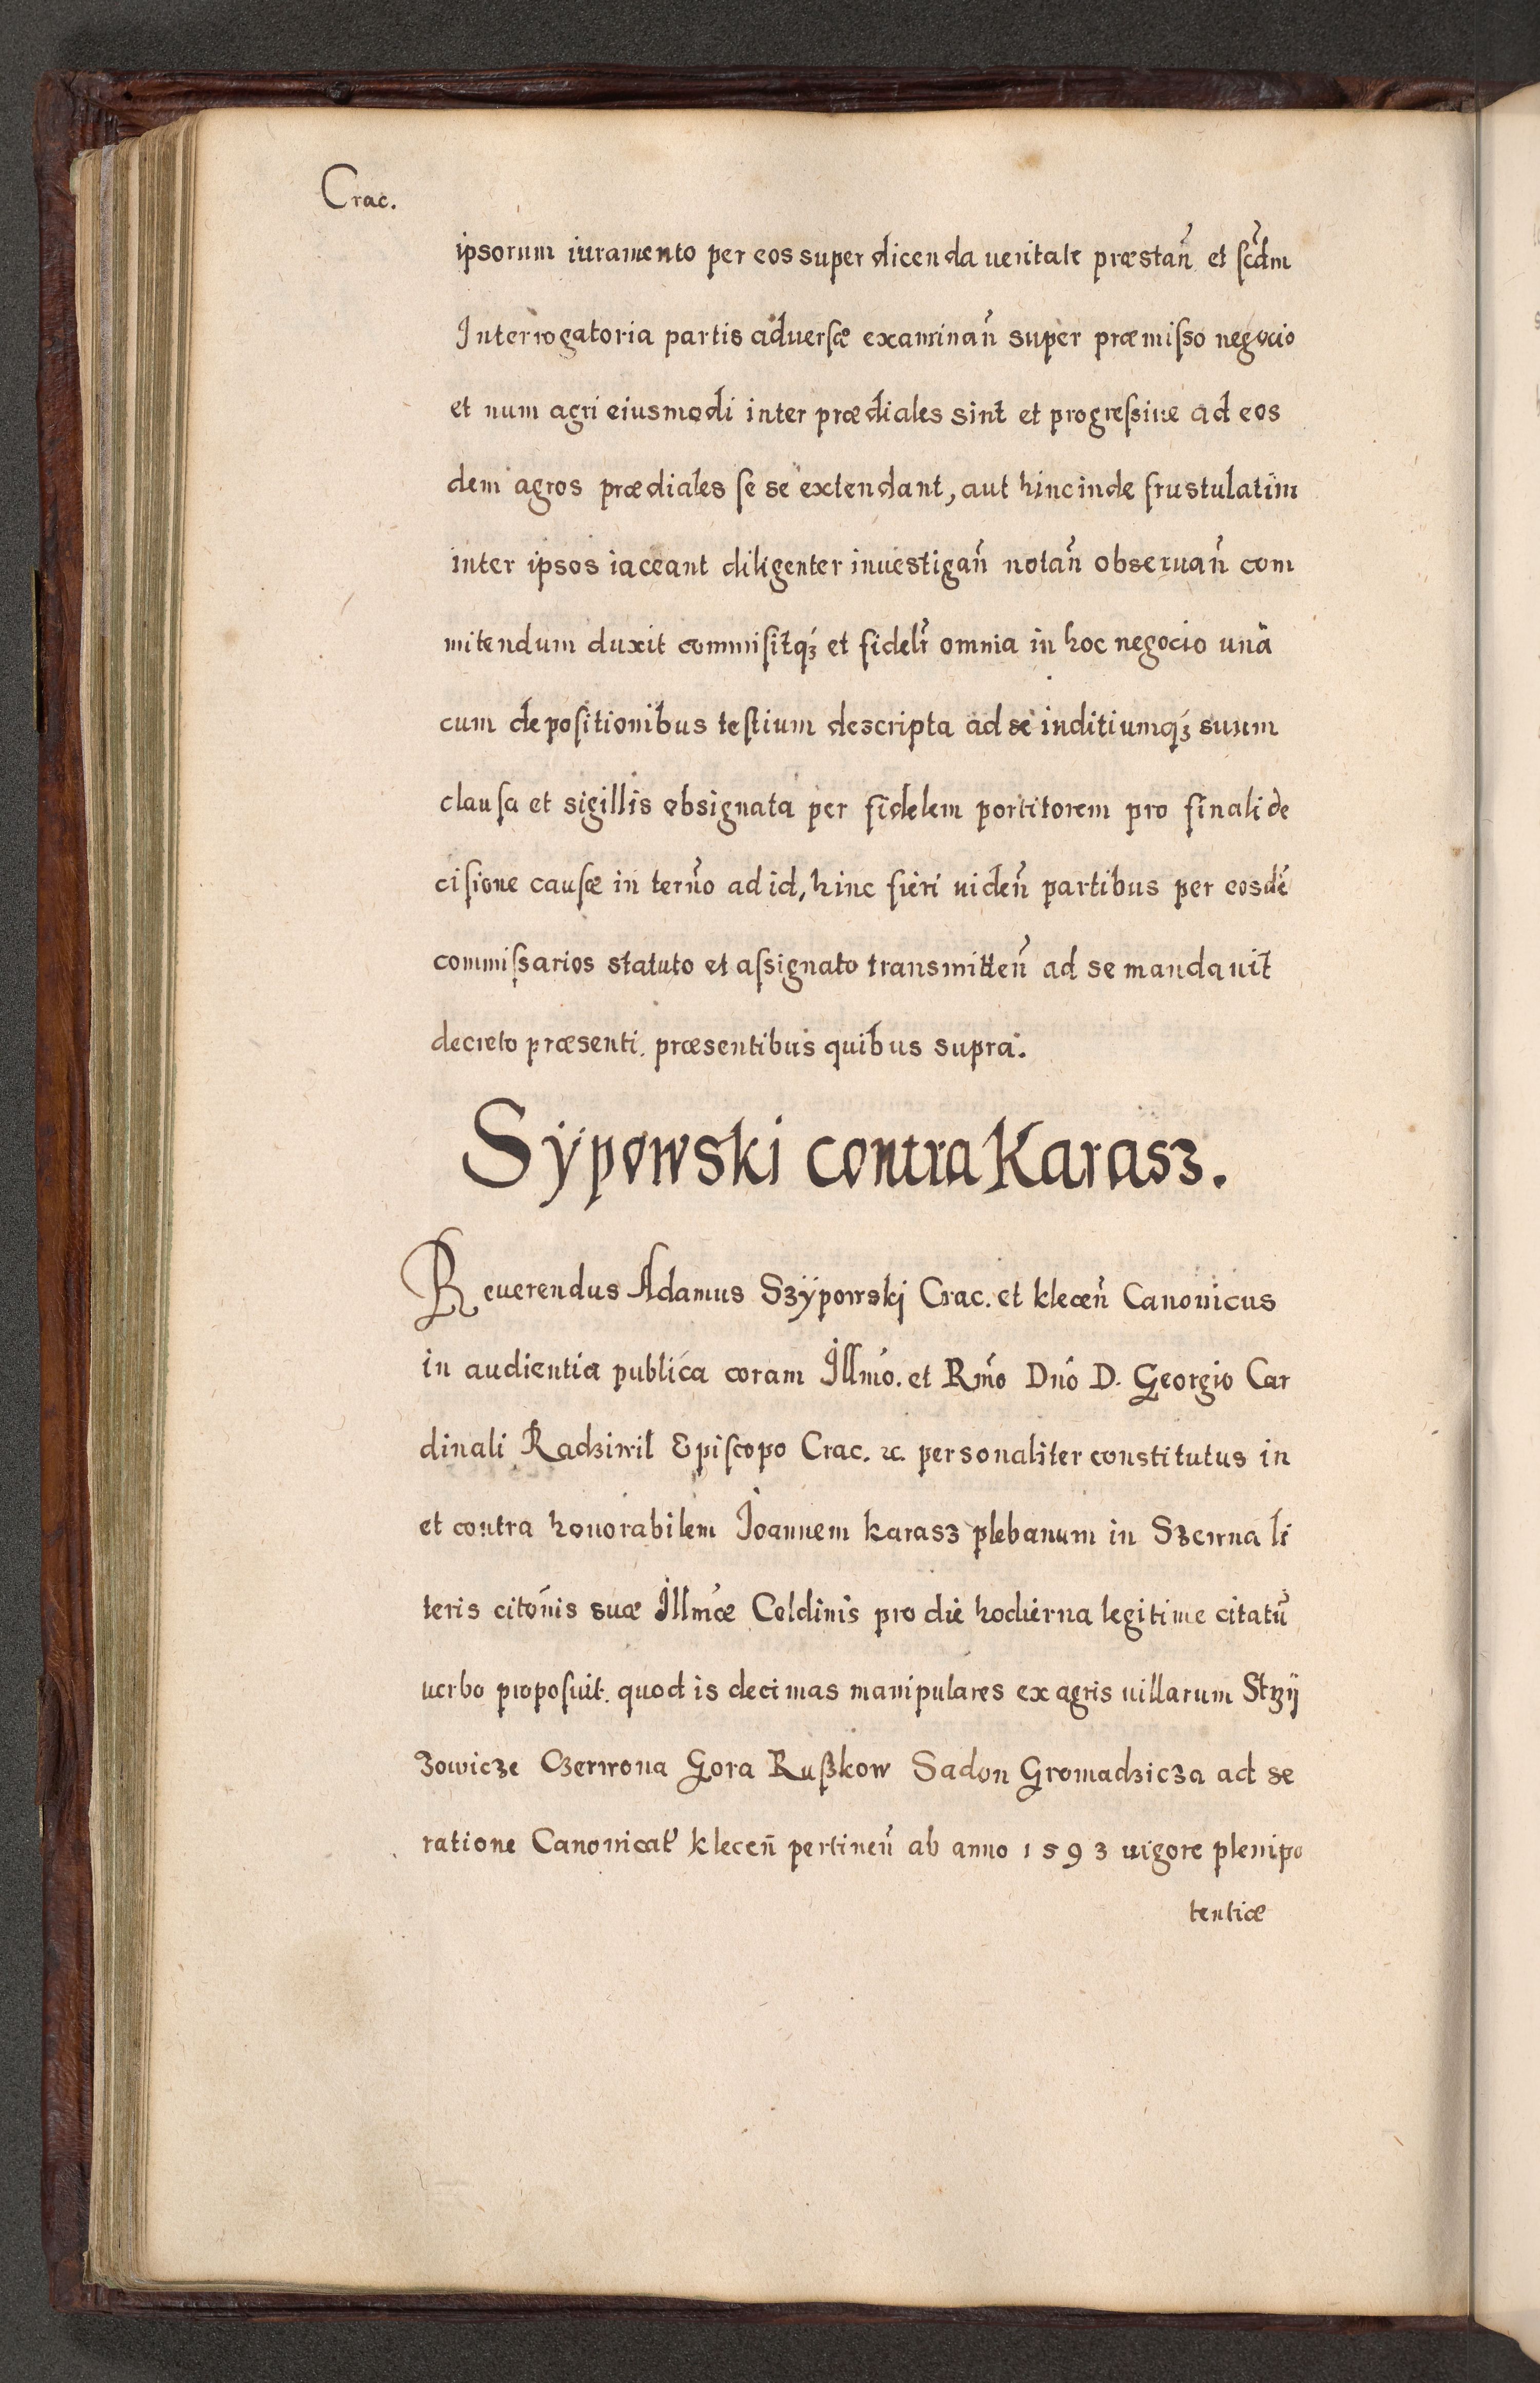 Crac.
ipsorum iuramento per eos super dicenda ueritate præstañ et scdm̃
Interrogatoria partis aduersæ examinañ super præmisso negocio
et num agri eiusmodi inter prædiales sint et progressiue ad eos
dem agros prædiales se se extendant, aut hincinde frustulatim
inter ipsos iaceant diligenter inuestigañ notañ obseruañ com
mitendum duxit commisitq́ꝫ et fidelr̃ omnia in hoc negocio unà
cum depositionibus testium descripta ad se inditiumq́ꝫ suum
clausa et sigillis obsignata per fidelem portitorem pro finali de
cisione causæ in terño ad id, hinc fieri uideñ partibus per eosdē
commissarios statuto et assignato transmitteñ ad se mandauit
decreto præsenti. præsentibus quibus supra.
Sÿpowski contra Karasz.
Reuerendus Adamus Szÿpowskj Crac. et kleceñ Canonicus
in audientia publica coram Illmo. et Rm̃o Dño D. Georgio Car
dinali Radziwil Episcopo Crac. ꝛc. personaliter constitutus in
et contra honorabilem Joannem karasz plebanum in Szewna li
teris citoñis suæ Illm̃æ Celdinis pro die hodierna legitime citatū
uerbo proposuit. quod is decimas manipulares ex agris uillarum Strzÿ
zowicze Czerwona Gora Rußkow Sadon Gromadzicza ad se
ratione Canonicat9 kleceñ pertineñ ab anno 1593 uigore plenipo
tentiæ